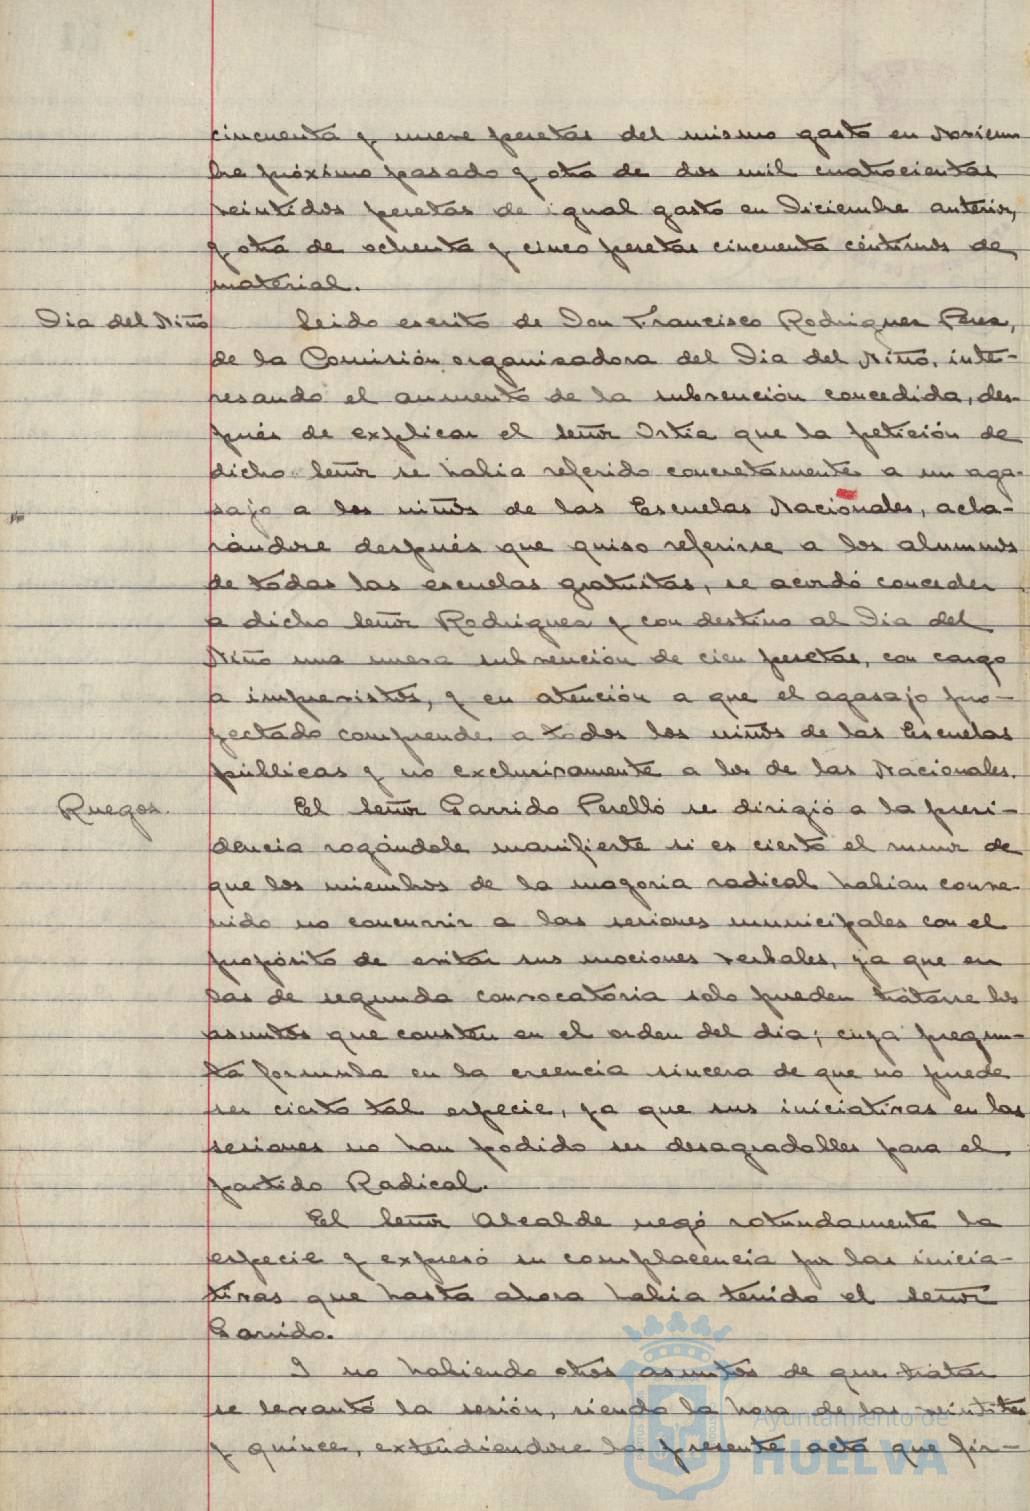 cincuenta y nueve pesetas del mismo gasto en Noviem
bre próximo pasado y otra de dos mil cuatrocientas
veintidos pesetas de igual gasto en Diciembre anterior,
y otra de ochenta y cinco pesetas cincuenta céntimos de
material.
Dia del Niño
Leido escrito de Don Francisco Rodriguez Perez,
de la Comisión organizadora del Dia del Niño, inte-
resando el aumento de la subvención concedida, des-
pués de explicar el señor Ortia que la petición de
dicho señor se habia referido concretamente a un aga-
sajo a los niños de las Escuelas Nacionales, acla-
rándose después que quiso referirse a los alumnos
de todas las escuelas gratuitas, se acordó conceder
a dicho señor Rodriguez y con destino al Dia del
Niño una nueva subvención de cien pesetas, con cargo
a imprevistos, y en atención a que el agasajo pro-
yectado comprende a todos los niños de las Escuelas
públicas y no exclusivamente a los de las Nacionales.
Ruegos.
El señor Garrido Perelló se dirigió a la presi-
dencia rogándole manifieste si es cierto el rumor de
que los miembros de la mayoria radical habian conve
nido no concurrir a las sesiones municipales con el
propósito de evitar sus mociones verbales, ya que en
las de segunda convocatoria solo pueden tratarse los
asuntos que consten en el orden del dia; cuya pregun-
ta formula en la creencia sincera de que no puede
ser cierto tal especie, ya que sus iniciativas en las
sesiones no han podido ser desagradables para el
partido Radical.
El señor Alcalde negó rotundamente la
especie y expresó su complacencia por las inicia-
tivas que hasta ahora habia tenido el señor
Garrido.
Y no habiendo otros asuntos de que tratar
se levantó la sesión, siendo la hora de las veintitres
y quince, extendiendose la presente acta que fir-
Ayuntamiento de
HUELVA